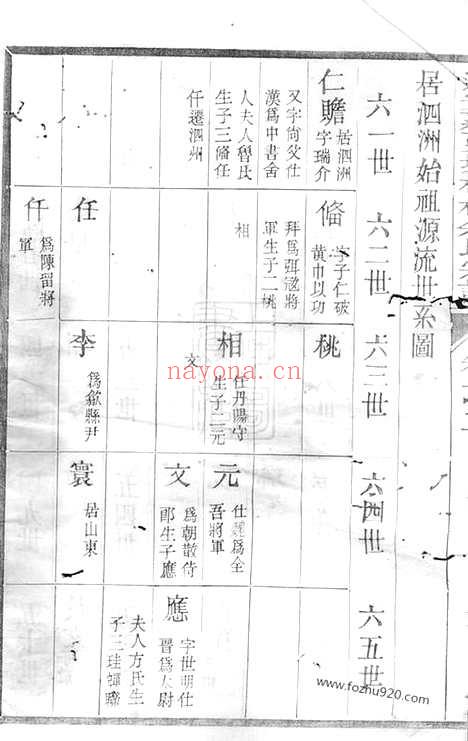 居泗洲始祖源流世系圖
六一世 六二世 六三世 六四世 六五世
仁贍 居泗洲
字瑞介
又字尙父仕
漢爲中書舍
人夫人魯氏
生子三偹任
仟遷泗州
偹 字子仁破
黃巾以功
拜爲弭寇將
軍生子二桃
相
任
仟 爲陳留將
軍
桃
相 仕丹陽守
生子二元
文
李 爲歙縣尹
元 仕魏爲全
吾將軍
文 爲朝散侍
郎生子應
寰 居山東
應 字世明仕
晉爲太尉
夫人方氏生
子三珪
nayona.cn
www.fozhu920.com